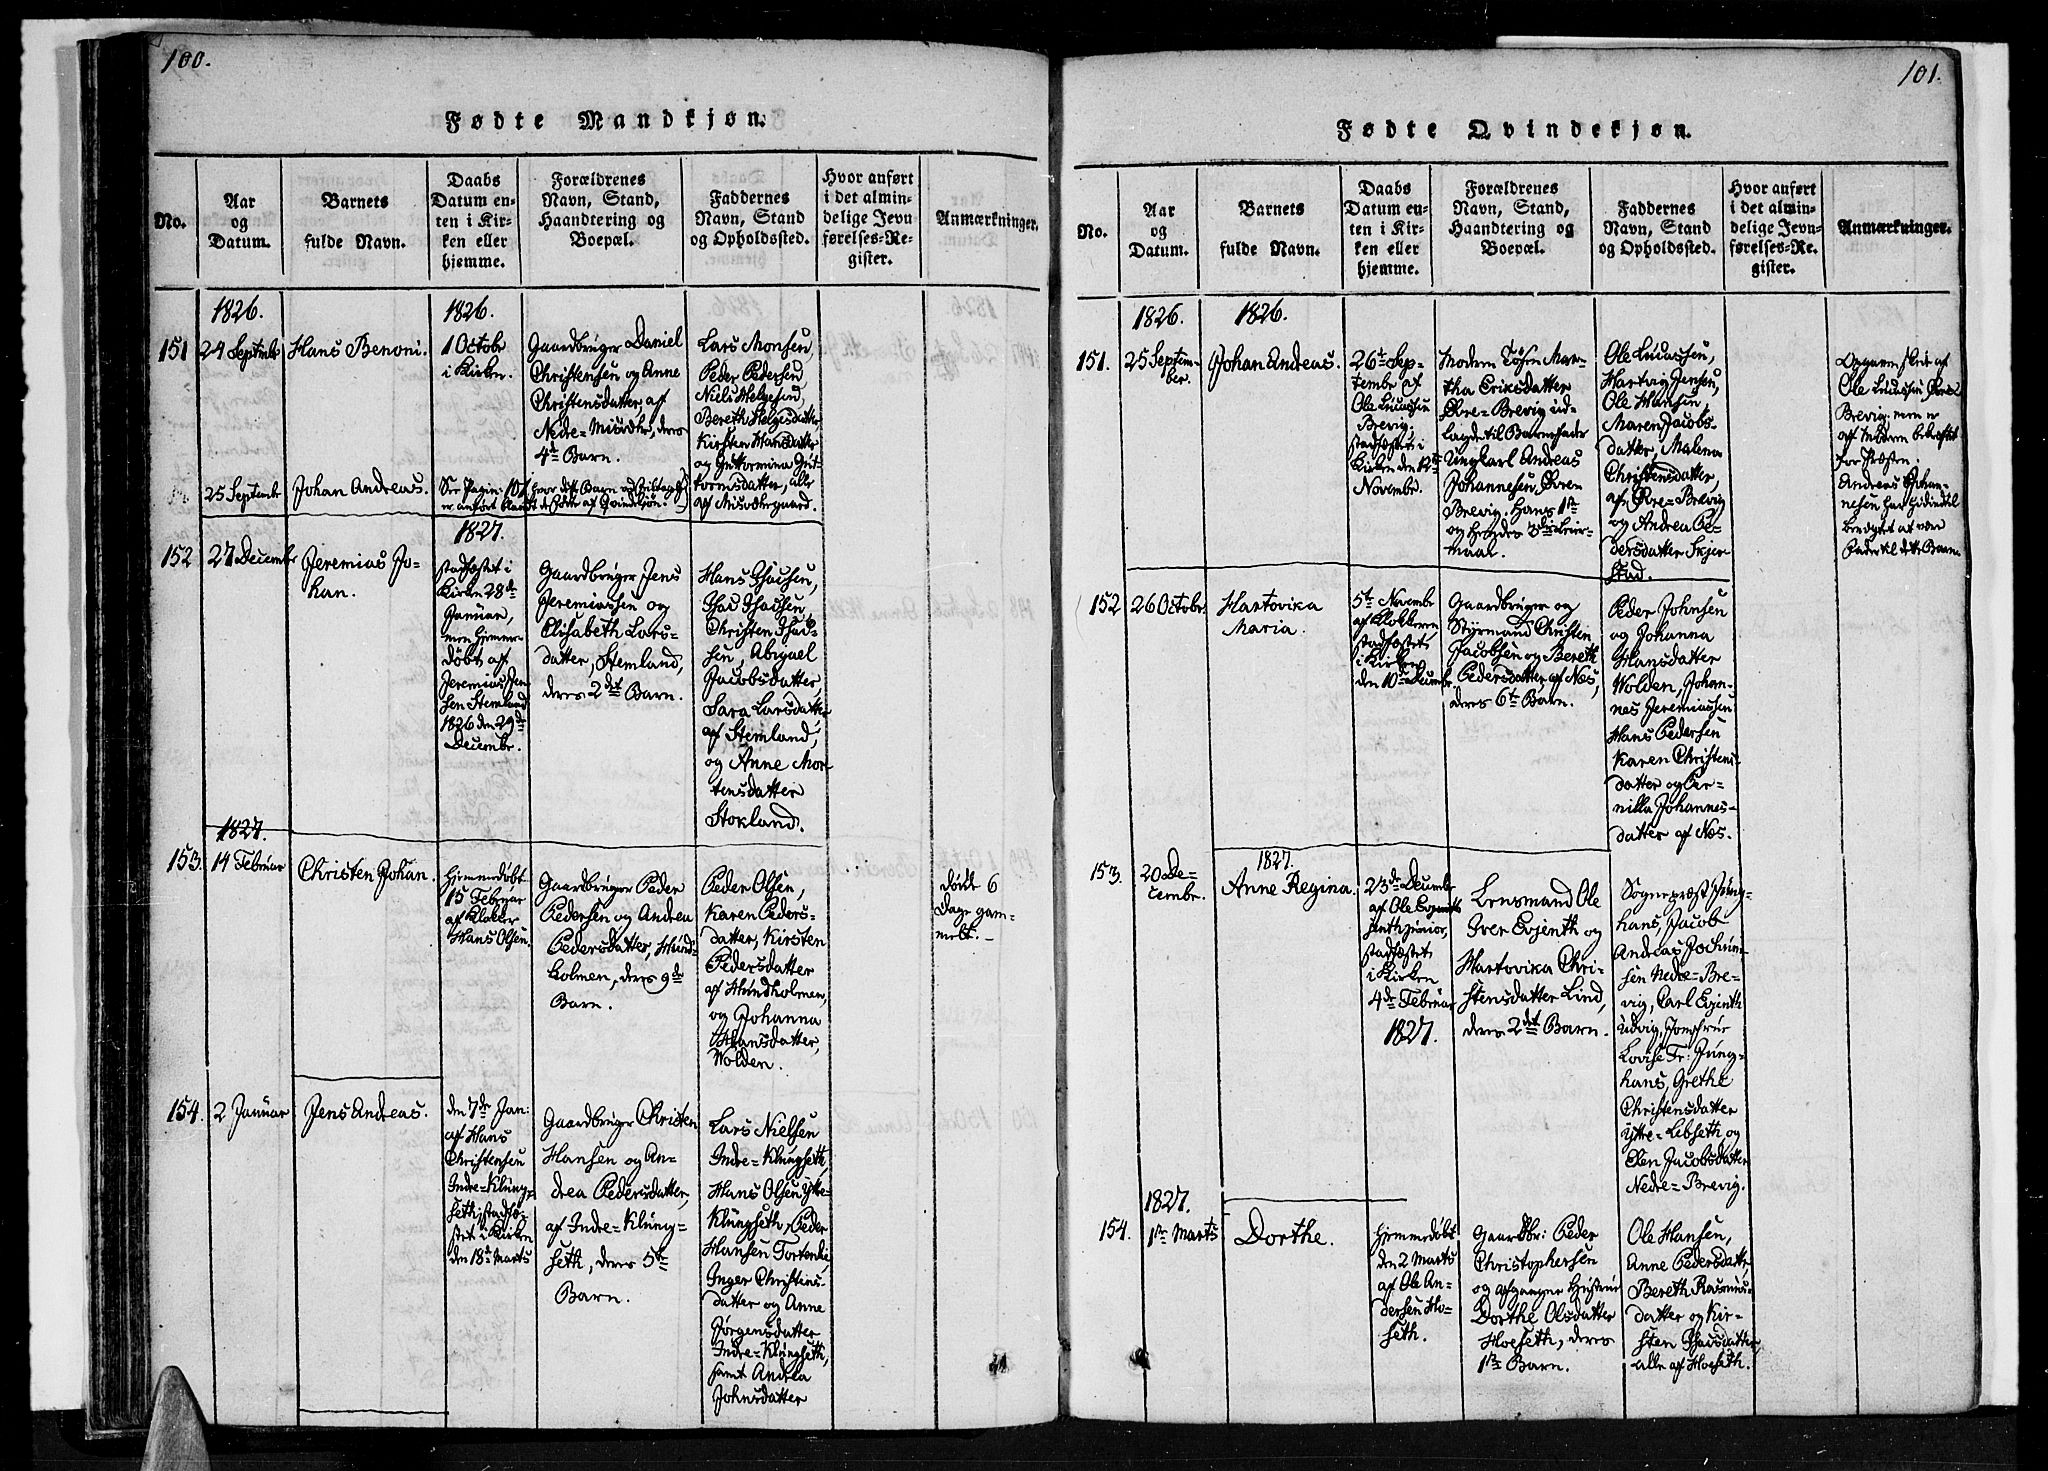 100.
Fødte Mandkjøn.
No.
Aar
og
Datum.
Barnets
fulde Navn.
Daabs
Datum en-
ten i Kir-
ken eller
hjemme.
Forældrenes
Navn, Stand,
Haandtering og
Boepæl.
Faddernes
Navn, Stand
og Opholdssted.
Hvor anført
i det almin-
delige Jevn
førelses-Re-
gister.
Anmærkninger.
1826.
1826.
151
24 Septembr
Hans Benoni.
1 Octobr
i Kirken.
Gaardbruger Daniel
Christensen og Anne
Christensdatter, af
Nedre-Misvær, deres
4de Barn.
Lars Monsen,
Peder Pedersen,
Niels Helgesen,
Bereth Helgesdatter
Kirsten Hansdatter
og Guttormina Gut-
tormsdatter, alle
af Misværgaard.
25 Septembr
Johan Andreas.
See Pagin: 101, hvor dette Barn
er anført blandt de Fødte af Qvindekjøn.
1827.
152
27 Decembr
Jeremias Jo-
han.
stadfæstet i
Kirken 28de
Januar,
men hjemme-
døbt af
Jeremias Jen-
sen Stemland
1826 den 29de
Decembr.
Gaardbruger Jens
Jeremiassen og
Elisabeth Lars-
datter, Stemland,
deres 2det Barn.
Hans Isacsen,
Isac Isacsen,
Christen Isac-
sen, Abigael
Jacobsdatter,
Sara Larsdatter
af Stemland,
og Anne Mor-
tensdatter
Stokland.
1827.
153.
14 Februar
Christen Johan.
Hjemmedøbt
15 Februar
af Klokker
Hans Olsen.
Gaardbruger Peder
Pedersen og Andrea
Pedersdatter, Mund-
holmen, deres 9de
Barn.
Peder Olsen,
Karen Peders-
datter, Kirsten
Pedersdatter
af Mundholmen,
og Johanna
Hansdatter,
Wolden.
døde 6
Dage gam-
melt.
154.
2 Januar
Jens Andreas.
den 7de Jan:
af Hans
Christensen
Indre-Klung-
seth, stadfæ-
stet i Kirken
den 18de Marts
Gaardbruger Christen
Hansen og An-
drea Pedersdatter,
af Indre-Klung-
seth, deres 5te
Barn.
Lars Nielsen
Indre-Klungseth,
Hans Olsen Ytre-
Klungseth, Peder
Hansen Tortenlie
Inger Christens-
datter og Anne
Jørgensdatter
Indre-Klungseth,
samt Andrea
Johnsdatter
101.
Fødte Qvindekjøn.
No.
Aar
og
Datum.
Barnets
fulde Navn.
Daabs
Datum en-
ten i Kir-
ken eller
hjemme.
Forældrenes
Navn, Stand,
Haandtering og
Boepæl.
Faddernes
Navn, Stand
og Opholdssted.
Hvor anført
i det almin-
delige Jevn-
førelses-Re-
gister.
Anmærkninger.
1826.
1826.
151.
25 Septem-
ber.
Johan Andreas.
26te Sep-
tembr af
Ole Lucassen
Brevig,
stadfæstet i
Kirken den 12te
Novembr.
Modern Tøsen Mar-
tha Eriksdatter
Øvre-Brevig ud-
lagde til Barnefader
Ungkarl Andreas
Johannesen, Øvre
Brevig. Hans 1ste
og hendes 3die Leier-
maal.
Ole Lucassen,
Hartvig Jensen,
Ole Hansen,
Maren Jacobs-
datter, Malena
Christensdatter,
af Øvre-Brevig
og Andrea Pe-
dersdatter Skjer-
stad.
Opgaven skeet af
Ole Lucassen Øvre
Brevig, men er
af Modern bekræftet
for Præsten.
Andreas Johan-
nesen har
benegtet at være
Fader til dette Barn.
152
26 Octobr.
Hartovika
Maria.
5te Novembr
af Klokkeren
stadfæstet
i Kirken
den 10de Decembr.
Gaardbruger og
Styrmand Christen
Jacobsen og Bereth
Pedersdatter af Næs,
deres 6te Barn.
Peder Johnsen
og Johanna
Hansdatter
Wolden, Johan-
nes Jeremiassen
Hans Pedersen
Karen Christens-
datter og Per-
nilla Johannes-
datter af Næs.
153.
20 De-
cembr.
1827.
Anne Regina.
23de Decembr
af Ole Evjenth
junior,
stadfæstet
i Kirken
4de Februar
1827.
Lensmand Ole
Iver Evjenth og
Hartovika Chri-
stensdatter Lind,
deres 2det Barn.
Sognepræst Jung-
hans, Jacob
Andreas Jochim-
sen Nedre-Bre-
vig, Carl Evjenth
Udvig, Jomfrue
Lovise Fr: Jung-
hans, Grethe
Christensdatter
Ytre-Lebseth og
Elen Jacobsdatter
Nedre-Brevig.
1827.
154.
1ste Marts
Dorthe.
Hjemmedøbt
den 2 Marts
af Ole An-
dersen Ho-
seth.
Gaardbr: Peder
Christophersen
og afgangne Hustrue
Dorthe Olsdatter
Hoeseth, deres
1ste Barn.
Ole Hansen,
Anne Pedersdatter,
Bereth Rasmus-
datter og Kir-
sten Isacsdatter,
alle af Hoeseth.